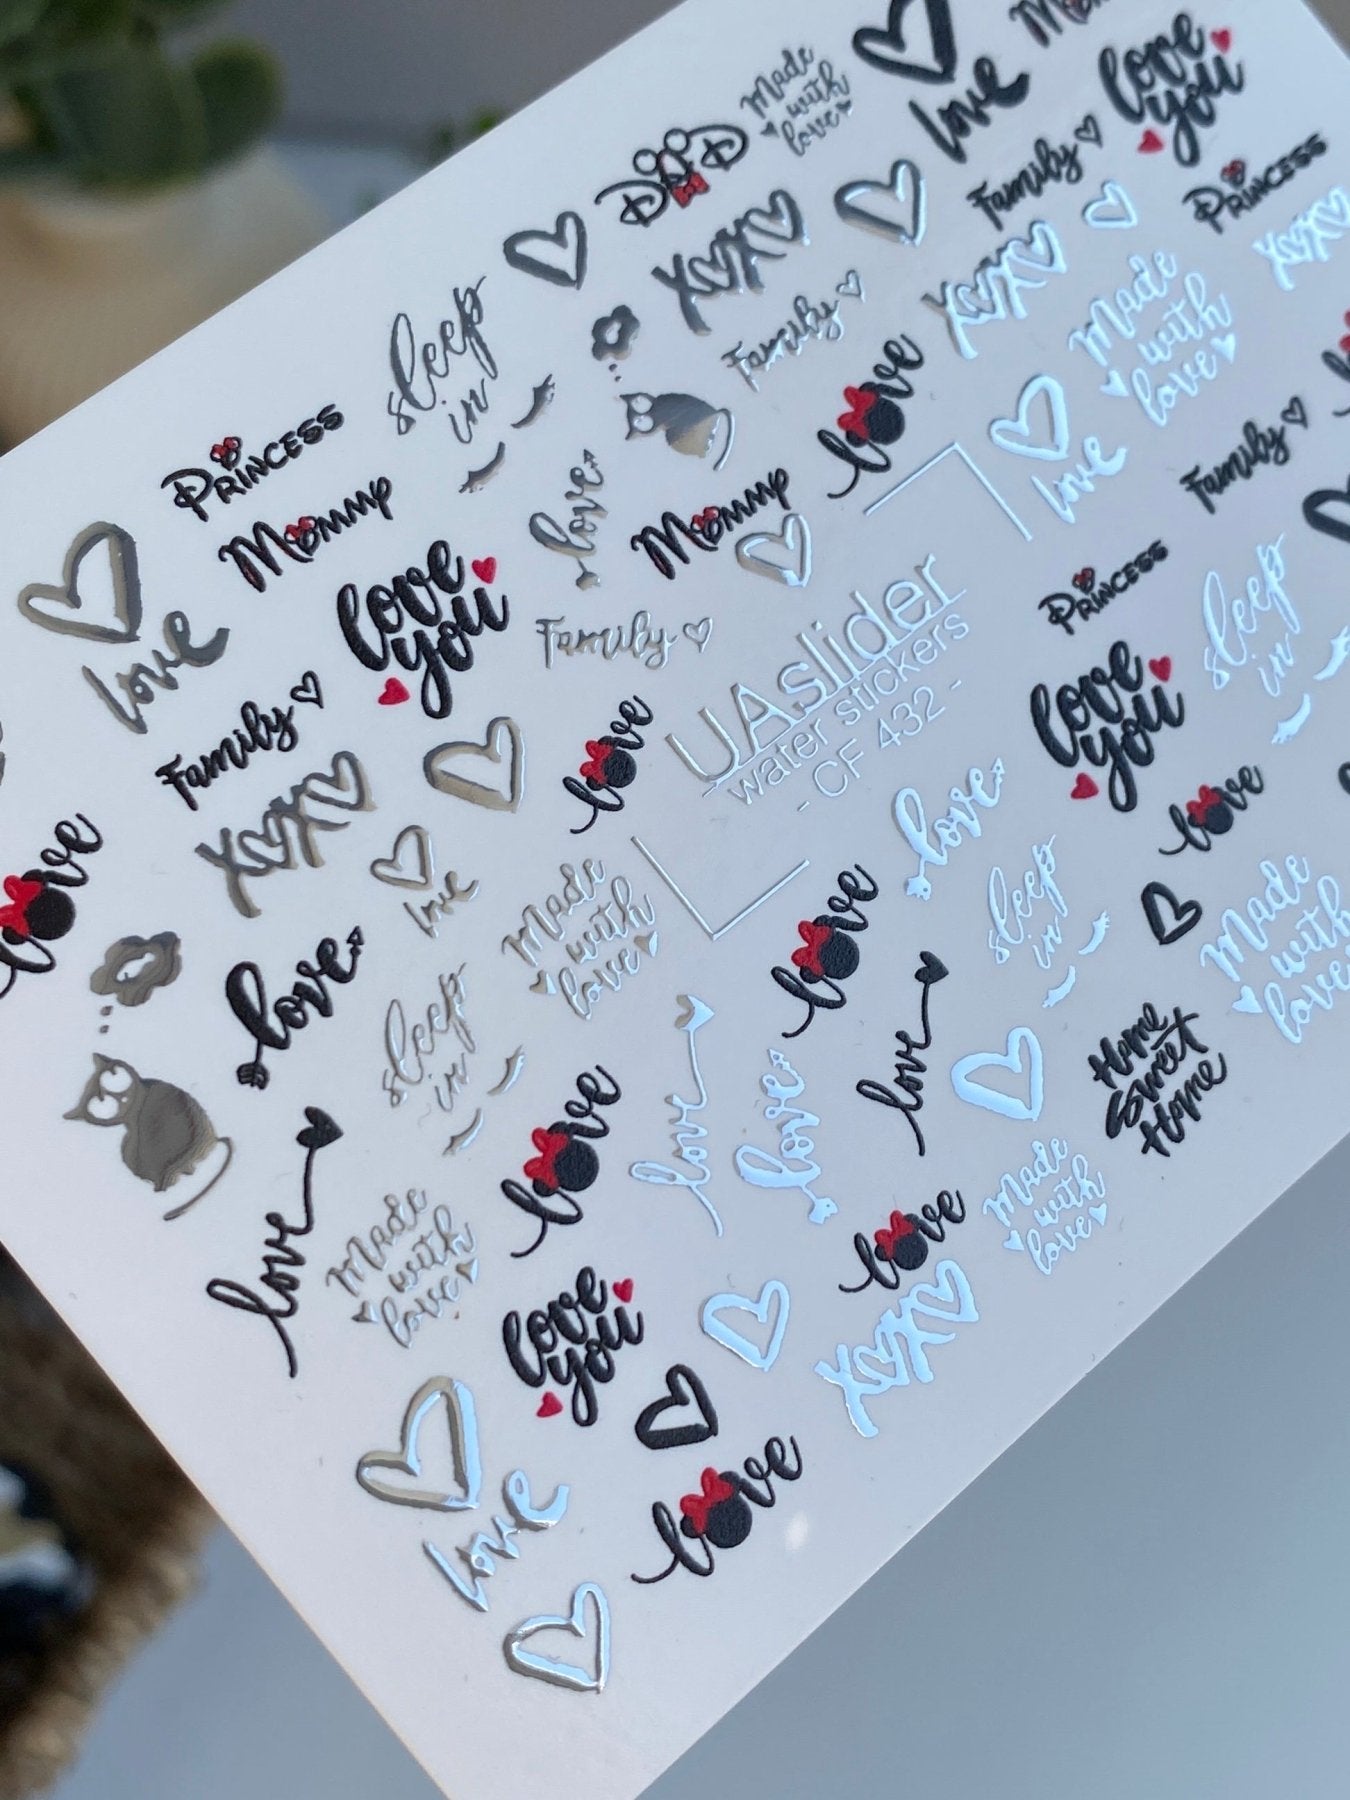 Made
with
love
Mommy
love
you
love
DAD
Family
Princess
XOXO
sleep
in
Family
XOXO
Made
with
love
XOXO
Princess
love
love
Mommy
love
Mommy
love
Family
love
you
Family
UAslider
water stickers
- CF 432 -
Princess
sleep
in
love
Family
love
you
XOXO
love
love
love
love
Made
with
love
love
sleep
in
love
Made
with
love
love
sleep
in
love
Home
Sweet
Home
love
love
love
love
Made
with
love
Made
with
love
love
love
you
XOXO
love
love